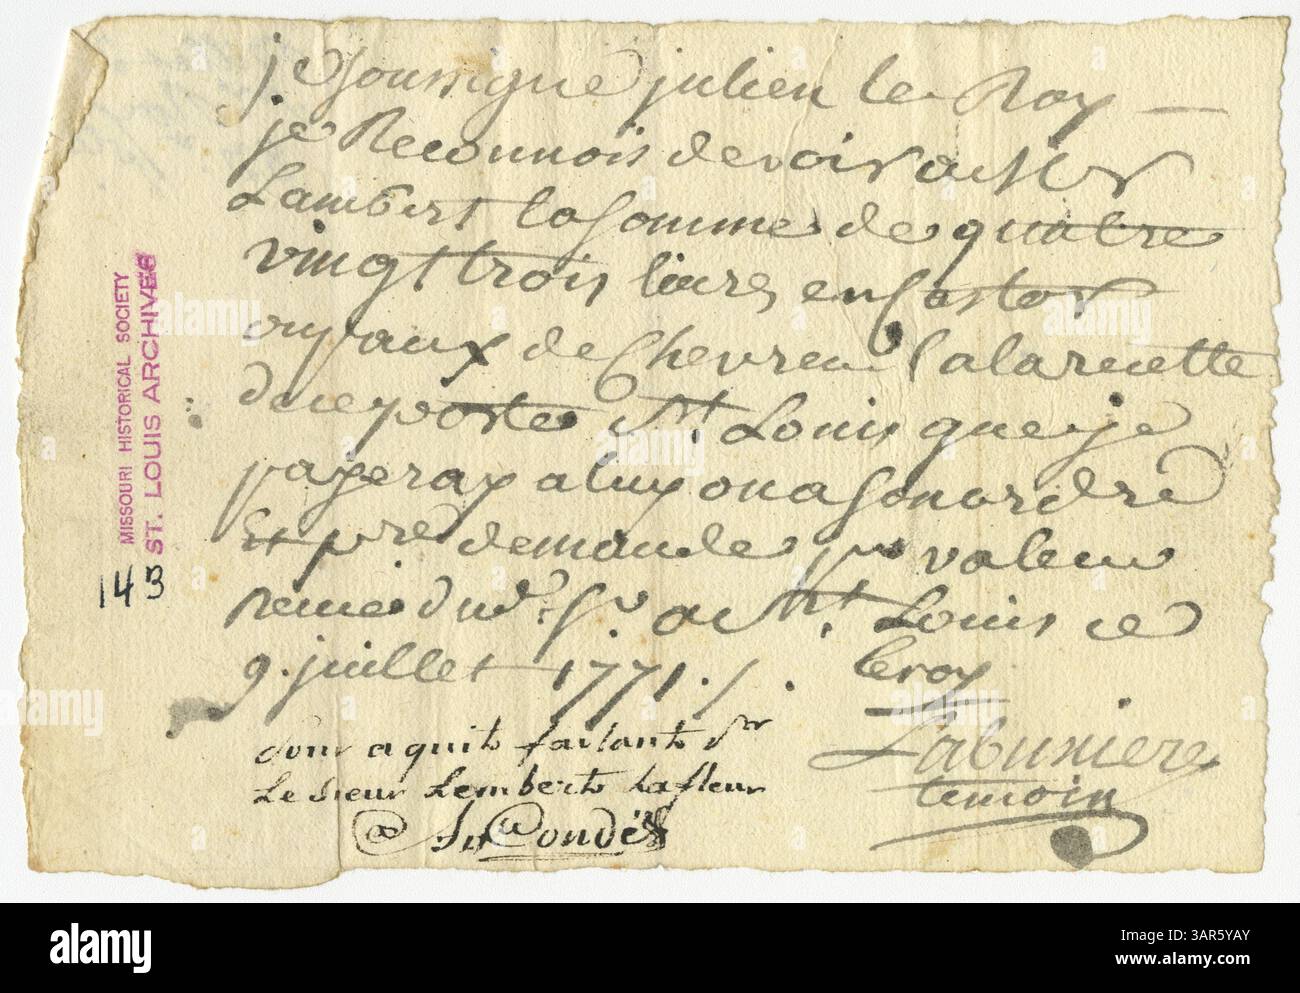 je soussigne julien le Roy —
je Reconnois devoir au Sr
Lambert la somme de quatre
vingt trois livres en Castor
ou paux de chevreul a la recette
de ce poste St. Louis que je
payeray a luy ou a son ordre
Et pre demande pr valeur
recue du d. Sr. a St. Louis ce
9. juillet 1771./.
leroy
Labuxiere
temoin
Pour aquit faisant Pr
Le Sieur Lemberts Lafleur
Condé
MISSOURI HISTORICAL SOCIETY
ST. LOUIS ARCHIVES
143
a
alamy
Image ID: 3AR5YAY
www.alamy.com